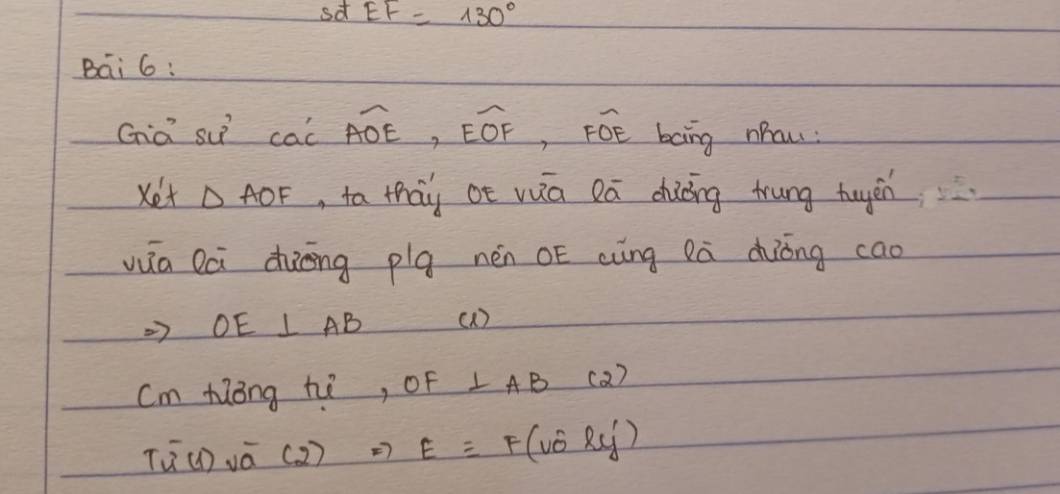 sđ EF = 130°
Bài 6:
Giả sử các AÔE, EÔF, FÔE bằng nhau:
Xét Δ AOF, ta thấy OE vừa là đường trung tuyến
vừa là đường p/g nên OE cũng là đường cao
=> OE ⊥ AB (1)
Cm tương tự, OF ⊥ AB (2)
Từ (1) và (2) => E ≡ F (vô lý)